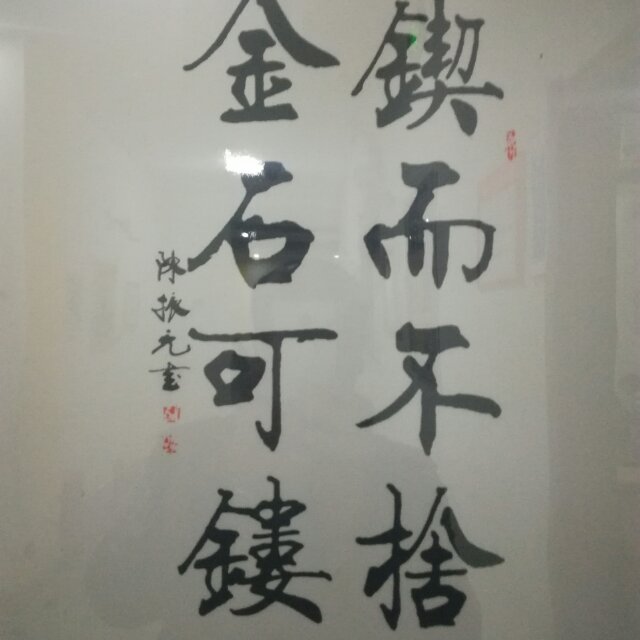 鍥而不捨
金石可鏤
陳振元書